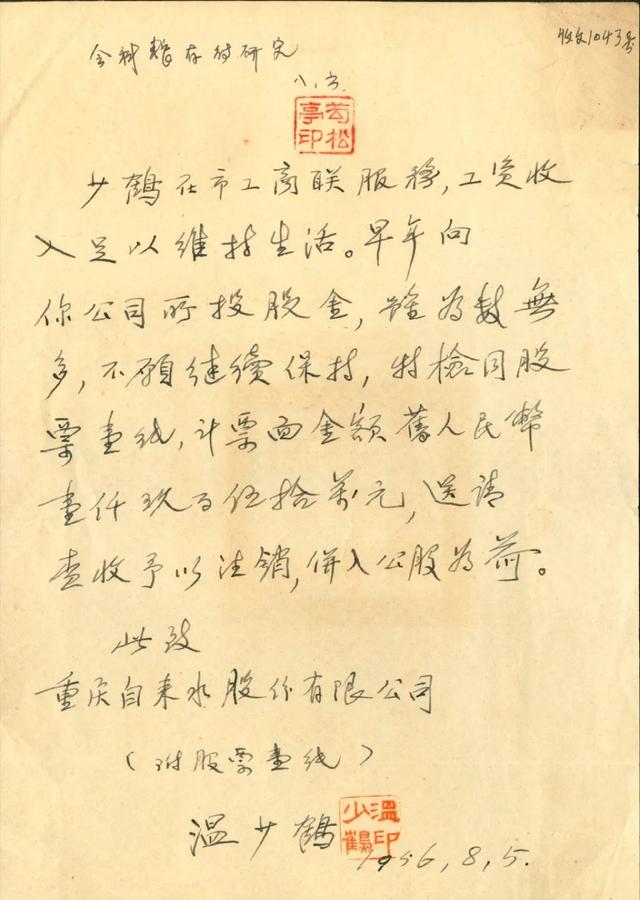 收文1043号
会科暂存待研究
八,六.
苟松亭印
少鶴在市工商联服務,工资收
入足以維持生活。早年向
你公司所投股金,雖為数無
多,不願继续保持,特檢同股
票壹纸,计票面金額舊人民幣
壹仟玖百伍拾萬元,送请
查收予以注銷,併入公股為荷。
此致
重庆自来水股份有限公司
(附股票壹纸)
温少鶴
温少鶴印
1956,8,5.